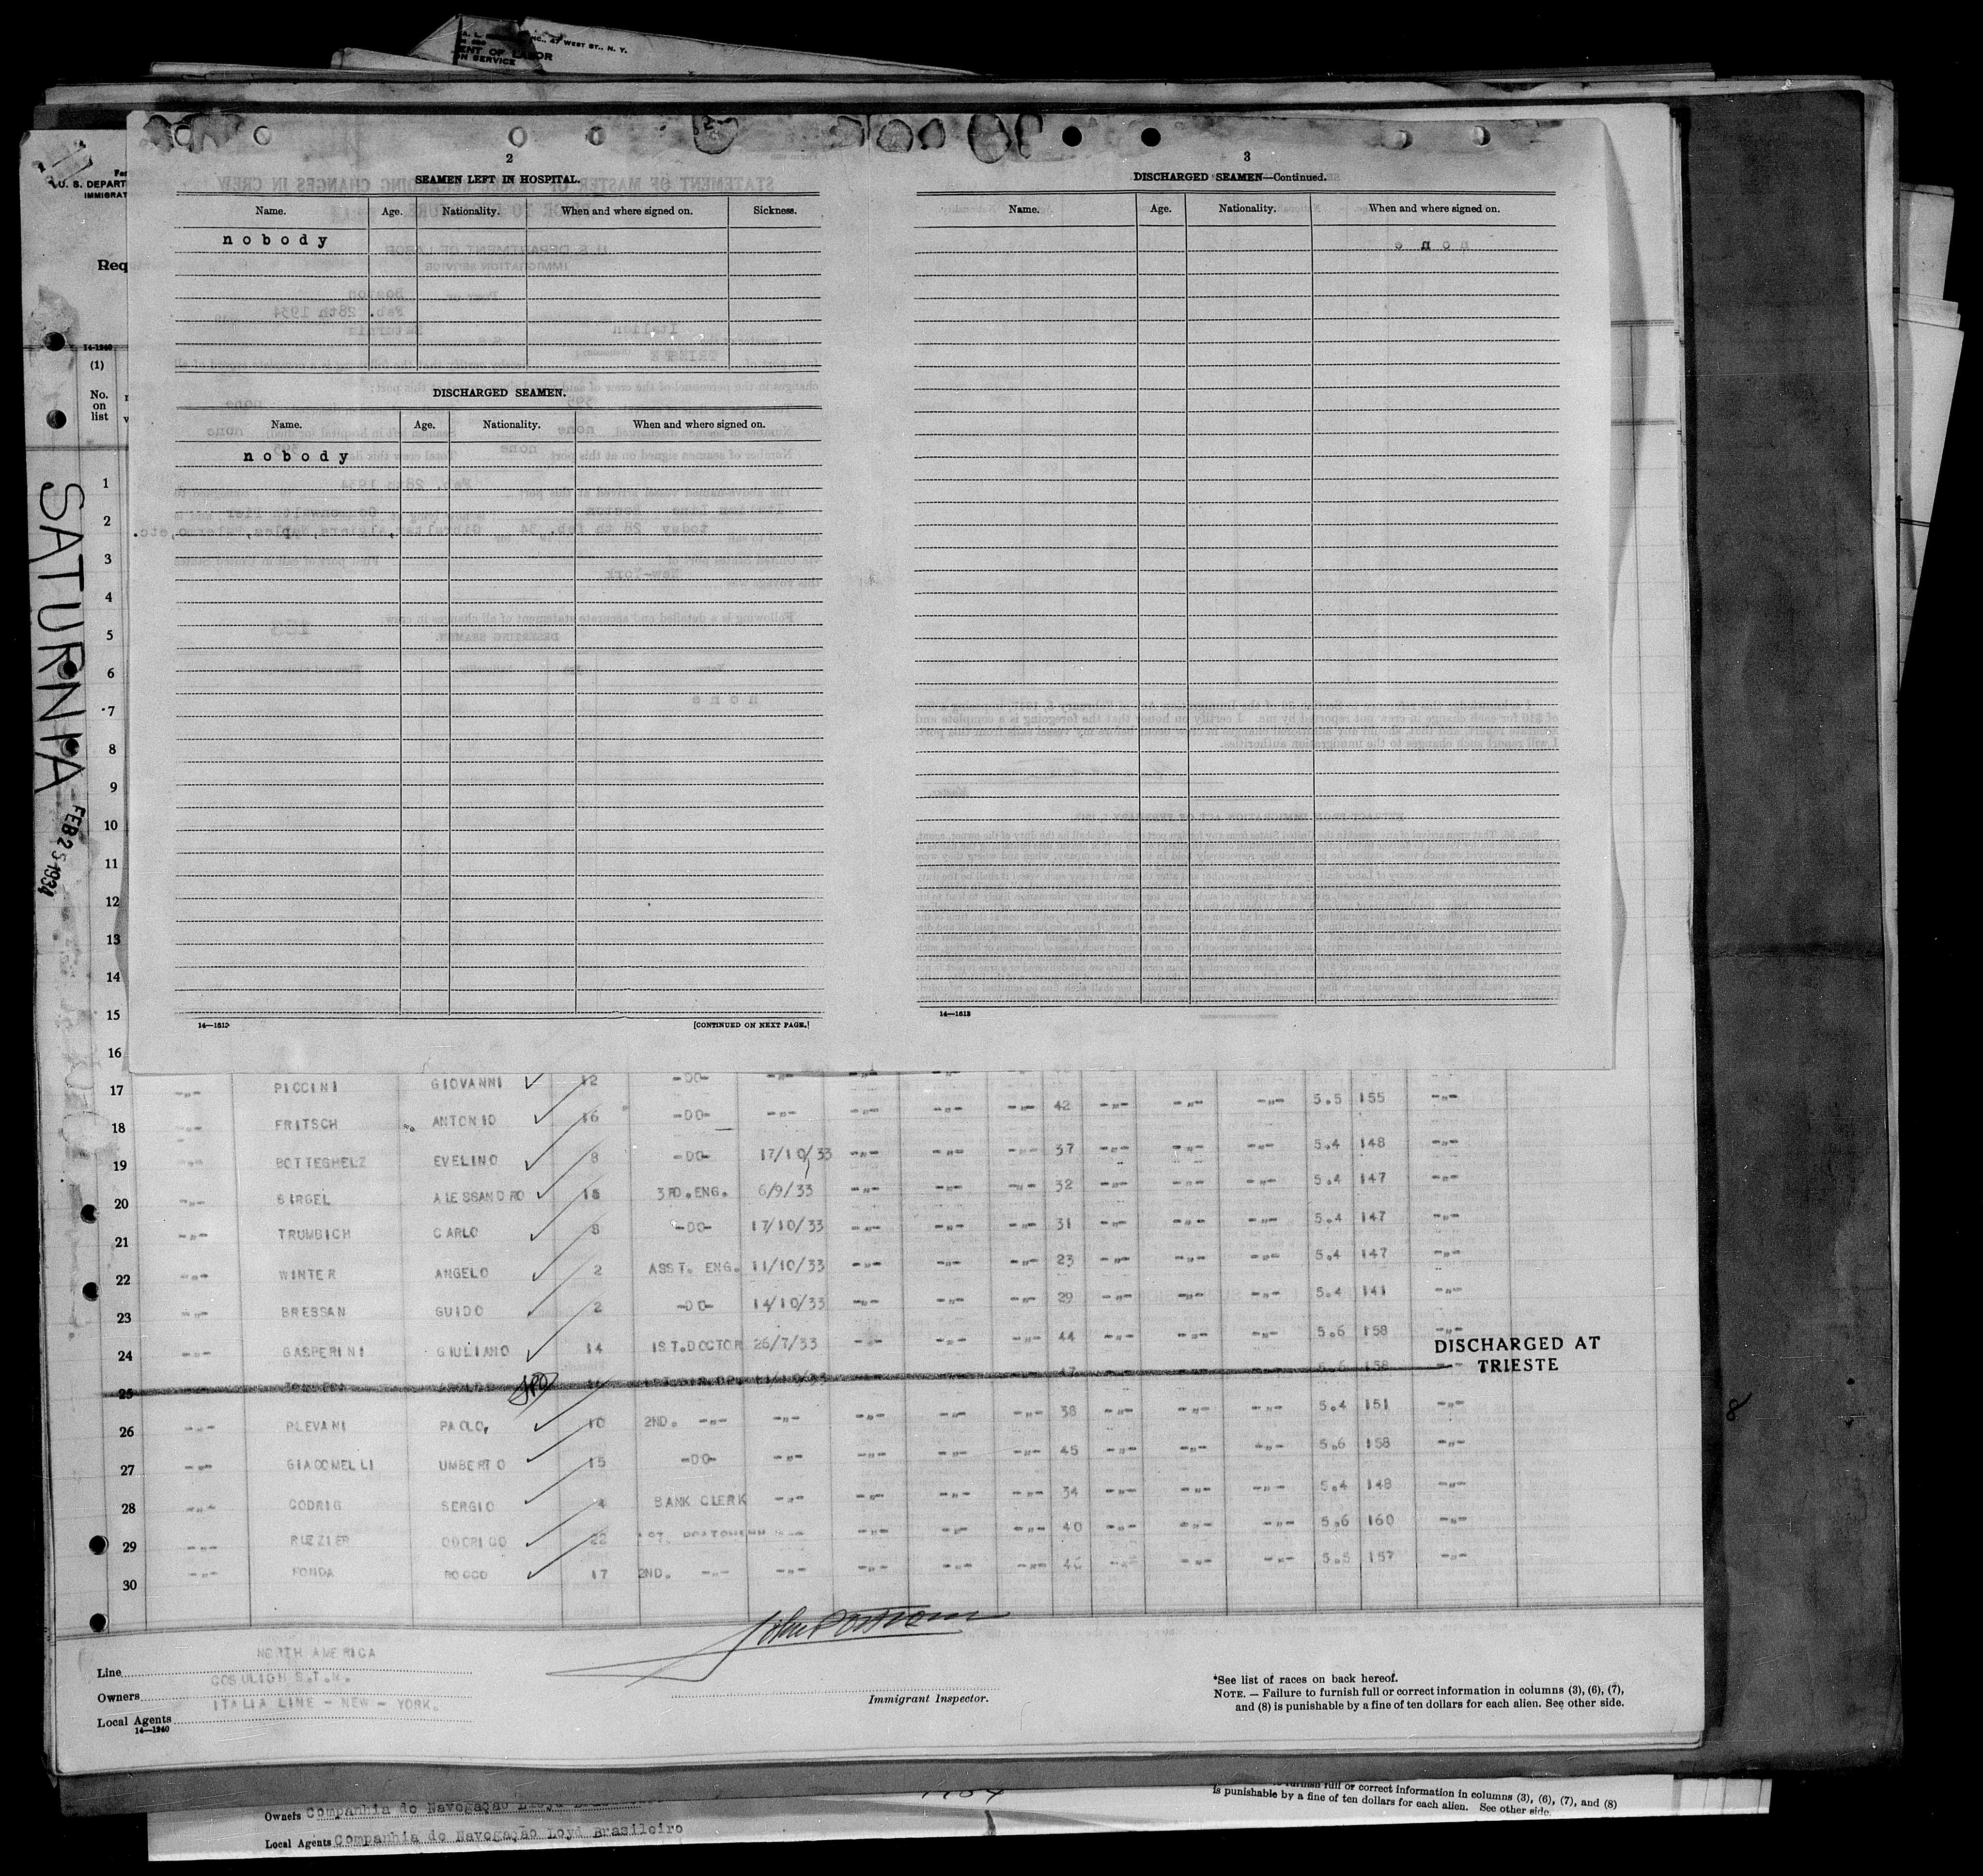 INC., 47 WEST ST., N. Y.
ENT OF LABOR
ON SERVICE
U. S. DEPART
IMMIGRAT
Req
14-1240
(1)
No.
on
list
SATURNIA
FEB 25 1934
2
SEAMEN LEFT IN HOSPITAL.
Name. Age. Nationality. When and where signed on. Sickness.
nobody
DISCHARGED SEAMEN.
Name. Age. Nationality. When and where signed on.
nobody
14—1613 [CONTINUED ON NEXT PAGE.]
3
DISCHARGED SEAMEN—Continued.
Name. Age. Nationality. When and where signed on.
14—1613
1
2
3
4
5
6
7
8
9
10
11
12
13
14
15
16
17 -"- PICCINI GIOVANNI 12 -DO- -"- -"- -"-
18 -"- FRITSCH ANTONIO 16 -DO- -"- -"- -"- -"- 42 -"- -"- -"- 5.5 155 -"-
19 -"- BOTTEGHELZ EVELINO 8 -DO- 17/10/33 -"- -"- -"- 37 -"- -"- -"- 5.4 148 -"-
20 -"- SIRGEL ALESSANDRO 15 3RD.ENG. 6/9/33 -"- -"- -"- 32 -"- -"- -"- 5.4 147 -"-
21 -"- TRUMBICH CARLO 8 -DO- 17/10/33 -"- -"- -"- 31 -"- -"- -"- 5.4 147 -"-
22 -"- WINTER ANGELO 2 ASST. ENG. 11/10/33 -"- -"- -"- 23 -"- -"- -"- 5.4 147 -"-
23 -"- BRESSAN GUIDO 2 -DO- 14/10/33 -"- -"- -"- 29 -"- -"- -"- 5.4 141 -"-
24 -"- GASPERINI GIULIANO 14 1ST.DOCTOR 26/7/33 -"- -"- -"- 44 -"- -"- -"- 5.6 158 -"-
DISCHARGED AT
TRIESTE
25 47 5.6 158
26 -"- PLEVANI PAOLO, 10 2ND. -"- -"- -"- -"- -"- 38 -"- -"- -"- 5.4 151 -"-
27 -"- GIACOMELLI UMBERTO 15 -DO- -"- -"- -"- -"- 45 -"- -"- -"- 5.6 158 -"-
28 -"- CODRIG SERGIO 4 BANK CLERK -"- -"- -"- -"- 34 -"- -"- -"- 5.4 148 -"-
29 -"- RUZZIER ODORICO 22 -"- -"- -"- 40 -"- -"- -"- 5.6 160 -"-
30 -"- FONDA ROCCO 17 2ND. -"- -"- -"- -"- -"- 46 -"- -"- -"- 5.5 157 -"-
Line NORTH AMERICA
Owners COSULICH S.T.N.
Local Agents ITALIA LINE - NEW - YORK.
14—1240
Immigrant Inspector.
*See list of races on back hereof.
NOTE. — Failure to furnish full or correct information in columns (3), (6), (7),
and (8) is punishable by a fine of ten dollars for each alien. See other side.
8
furnish full or correct information in columns (3), (6), (7), and (8)
is punishable by a fine of ten dollars for each alien. See other side.
Owners Companhia do Navogação Lloyd Brasileiro
Local Agents Companhia do Navogação Loyd Brasileiro